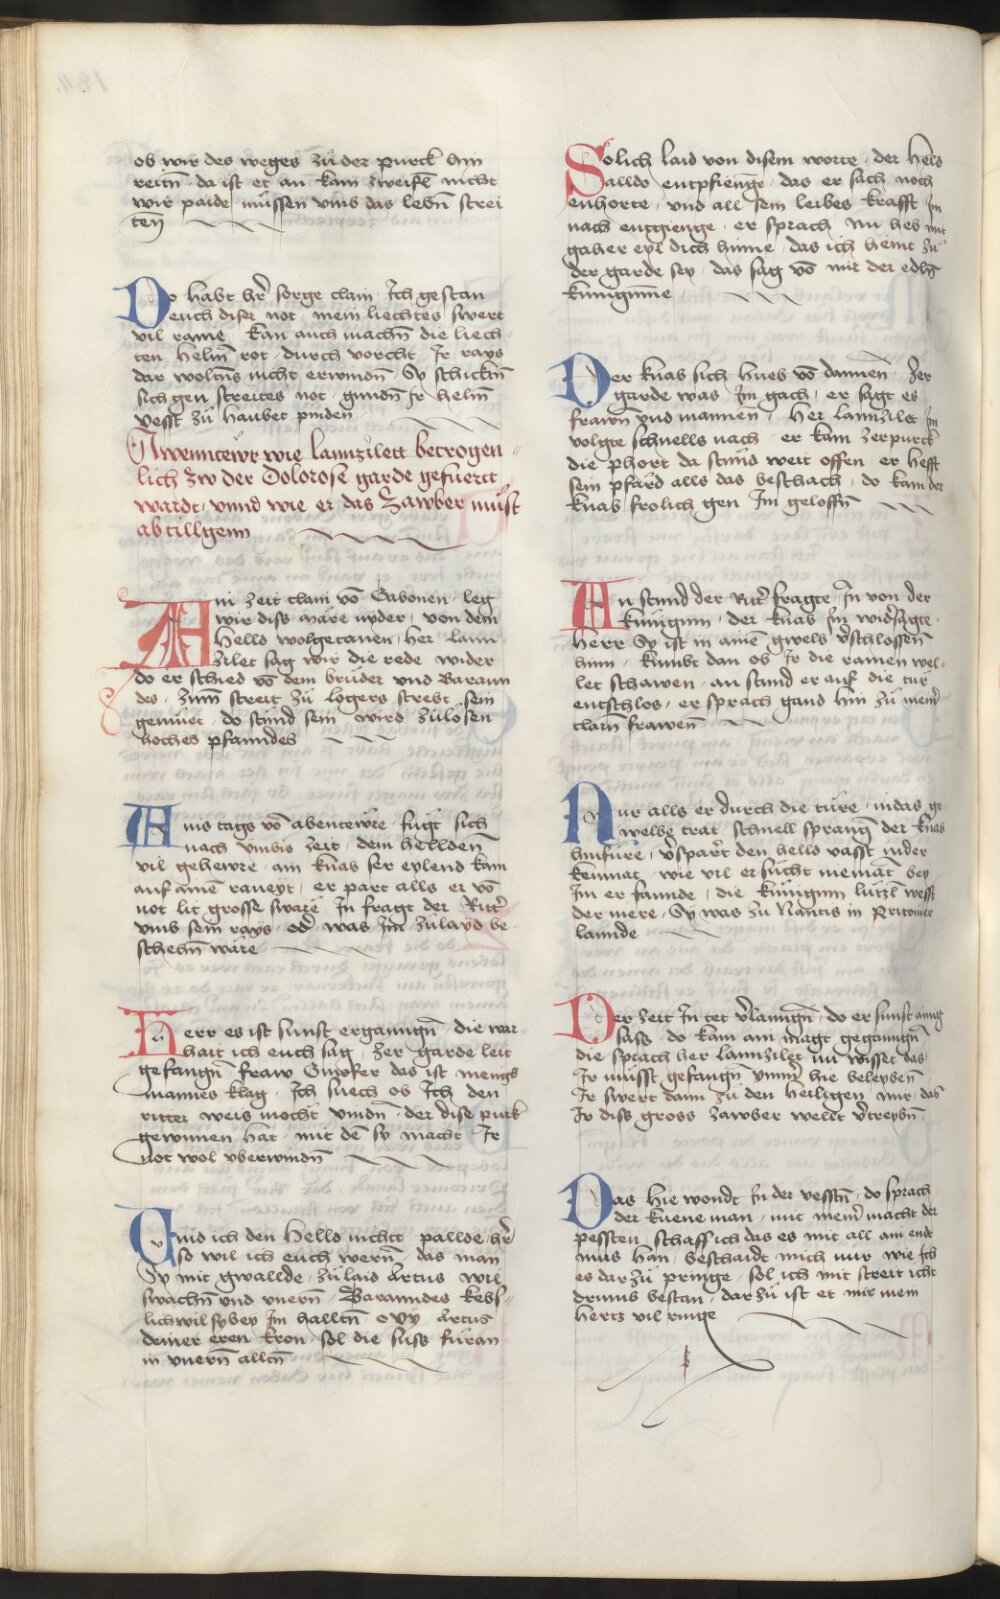 ob wir des weges zu der purckh hin
reitn̄ · da ist et an kain zweifl nicht
wir paide müssen vmb das lebn̄ strei
ten̄
Do habt hr̄ sorge clain · Ich gestan
euch diser not · mein liechtes swert
vil raine · kan auch machn̄ die liech-
ten helm̄ rot · durch vorcht Ir rays
dar woltn̄s nicht erwindn̄ · Sy schicktn̄
sich gen streites not · gundn̄ Ir helm̄
vesst zu haubet pinden
Awenntewr wie lannzilett betrogen-
lich zw der Dolorose garde gefuertt
wardt · vnnd wie er das Zawber must
abtillgenn
Ain zeit clain vō Gabonen · leg
wir diss märe nyder · von dem
Helld wolgetanen · her lann-
zilet sag wir die rede wider
do er schied vō dem bruder vnd Baraun
des · zum̄ streit zu logers strebt sein
gemuet · do stund sein wird zulosen
hoches pfanndes
Ains tags vō abenteüre · fügt sich
nach Imbis zeit · dem hellden̄
vil gehewre · ain knab ser eylend kam
auf ainē raveyt · er part alls er vō
not lit grosse sware In fragt der Ritt̄
vmb sein rays · od̄ was Im zulayd be-
schehn̄ wäre
Herr es ist sunst erganngn̄ · die war-
hait ich euch sag · zer garde leit
gefangn̄ fraw Gynofer das ist menngs
mannes klag · Ich suech ob Ich den
ritter weis mocht vindn̄ · der dise purk
gewunnen hat · mit dē so macht Ir
not wol vberwindn̄
Vind ich den Helld nichtt palde hr̄
so wil ich euch wern̄ · das man
Sy mit gwallde · zu laid Artus wil
swachn̄ vnd vnern̄ · Baraundes kebs-
lich wil sy bey Im halltn̄ · owy Artus
deiner eren kron · sol die suss füran
in vnern̄ alltn̄
Solich laid von disem worte · der held
balldo entpfienge · das er sach noch
enhorte · vnd all sein leibes krafft Im
nach enngienge · er sprach nu heb mit
gaher eyl dich hinne · das ich heint zu
der garde sey · das sag vō mir der edln̄
kuniginne
Der knab sich hueb vō dannen̄ · Zer
garde was Im gach · er sagt es
frawn̄ vnd mannen̄ · Her lannzilet Im
volgte schnells nach · er kam zerpurckh
die phort da stund weit offen · er hefft
sein pfärd alls das beschach · do kam der
knab frolich gen Im geloffn̄
An stund der Ritt̄ fragte Jn von der
kunigin · der knab Im wid̄sagte ·
herr Sy ist in ainē gwelb v̄schlossen̄
hinn · kumbt dan ob Ir die rainen wel-
let schawen · an stund er auf die tür
entschlos · er sprach gand hin zu mein̄
clarn̄ frawen̄
Nur alls er durch die türe · in das ge
welbe trat · schnell spranḡ der knab
hinfüre · v̄sparrt den helld vasst in der
kemnat · wie vil er sücht niemāt bey
Im er fannde · die künigin lützl wesst
der mere · Sy was zu Nantis in Pritanie
lannde
Der zeit In tet v̄lanngn̄ · do er sunst ainig
sass · do kam ain magt gegangn̄
die sprach her lannzilet nu wisset das
Ir müsst gefangn̄ ymm̄ hie beleybn̄ ·
Ir swert dann zu den heiligen mir · das
Ir diss gross zawber wellt v̄treybn̄
Das hie wondt in der vesstn̄ · do sprach
der kuene man · mit mein̄ macht der
pessten · schaff ich das es mit all ain ende
mus han · beschaidt mich nur wie Ich
es dar zu pringe · sol ich mit streit icht
drumb bestan · dar zu ist et mir mein
hertz vil ringe